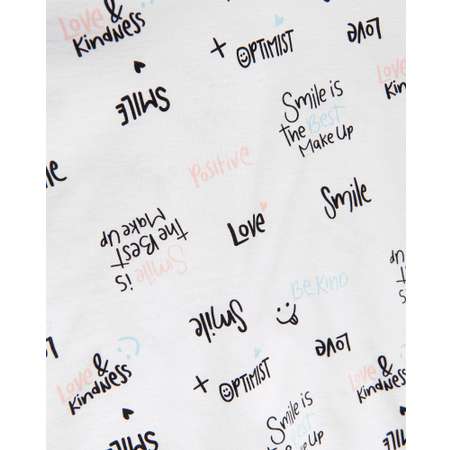 Love &
Kindness
+ OPTIMIST
Love
Love &
Kindness
SMILE
Smile is
the Best
Make Up
Positive
Smile
Love
Smile
is
The Best
Make Up
Be Kind
Smile
Love
Love &
Kindness
+ OPTIMIST
Love &
Kindness
Smile is
the Best
Make Up
SMILE